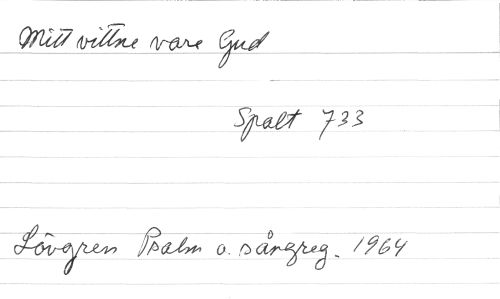 Mitt vittne vare Gud
Spalt 733
Lövgren Psalm o. sångreg. 1964